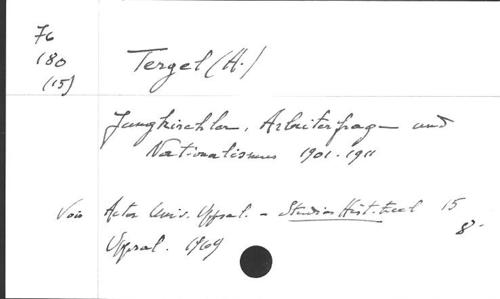 76
180
(15)
Tergel (A.)
Jungkirchler, Arbeiterfrage und
Nationalismus 1901-1911
Voir Acta Univ. Upsal. - Studia Hist. Eccl 15
8°
Uppsal. 1969